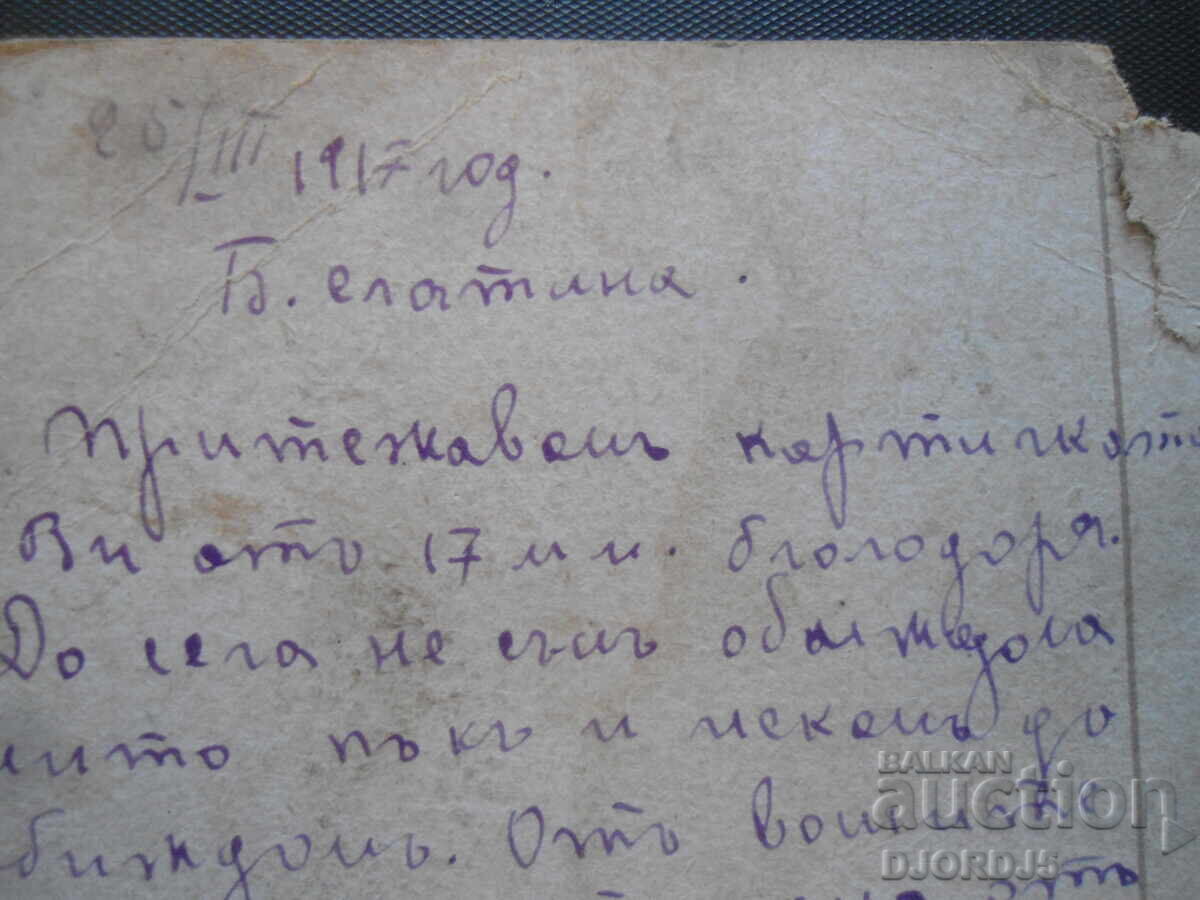 26/III 1917 год.
Б. Слатина.
Притежавамъ картичката
Ви отъ 17 т.м. благодаря.
До сега не съмъ обиждала
нито пъкъ и искамъ да
обиждамъ. Отъ вашите
отъ
BALKAN
auction
DJORDJ5